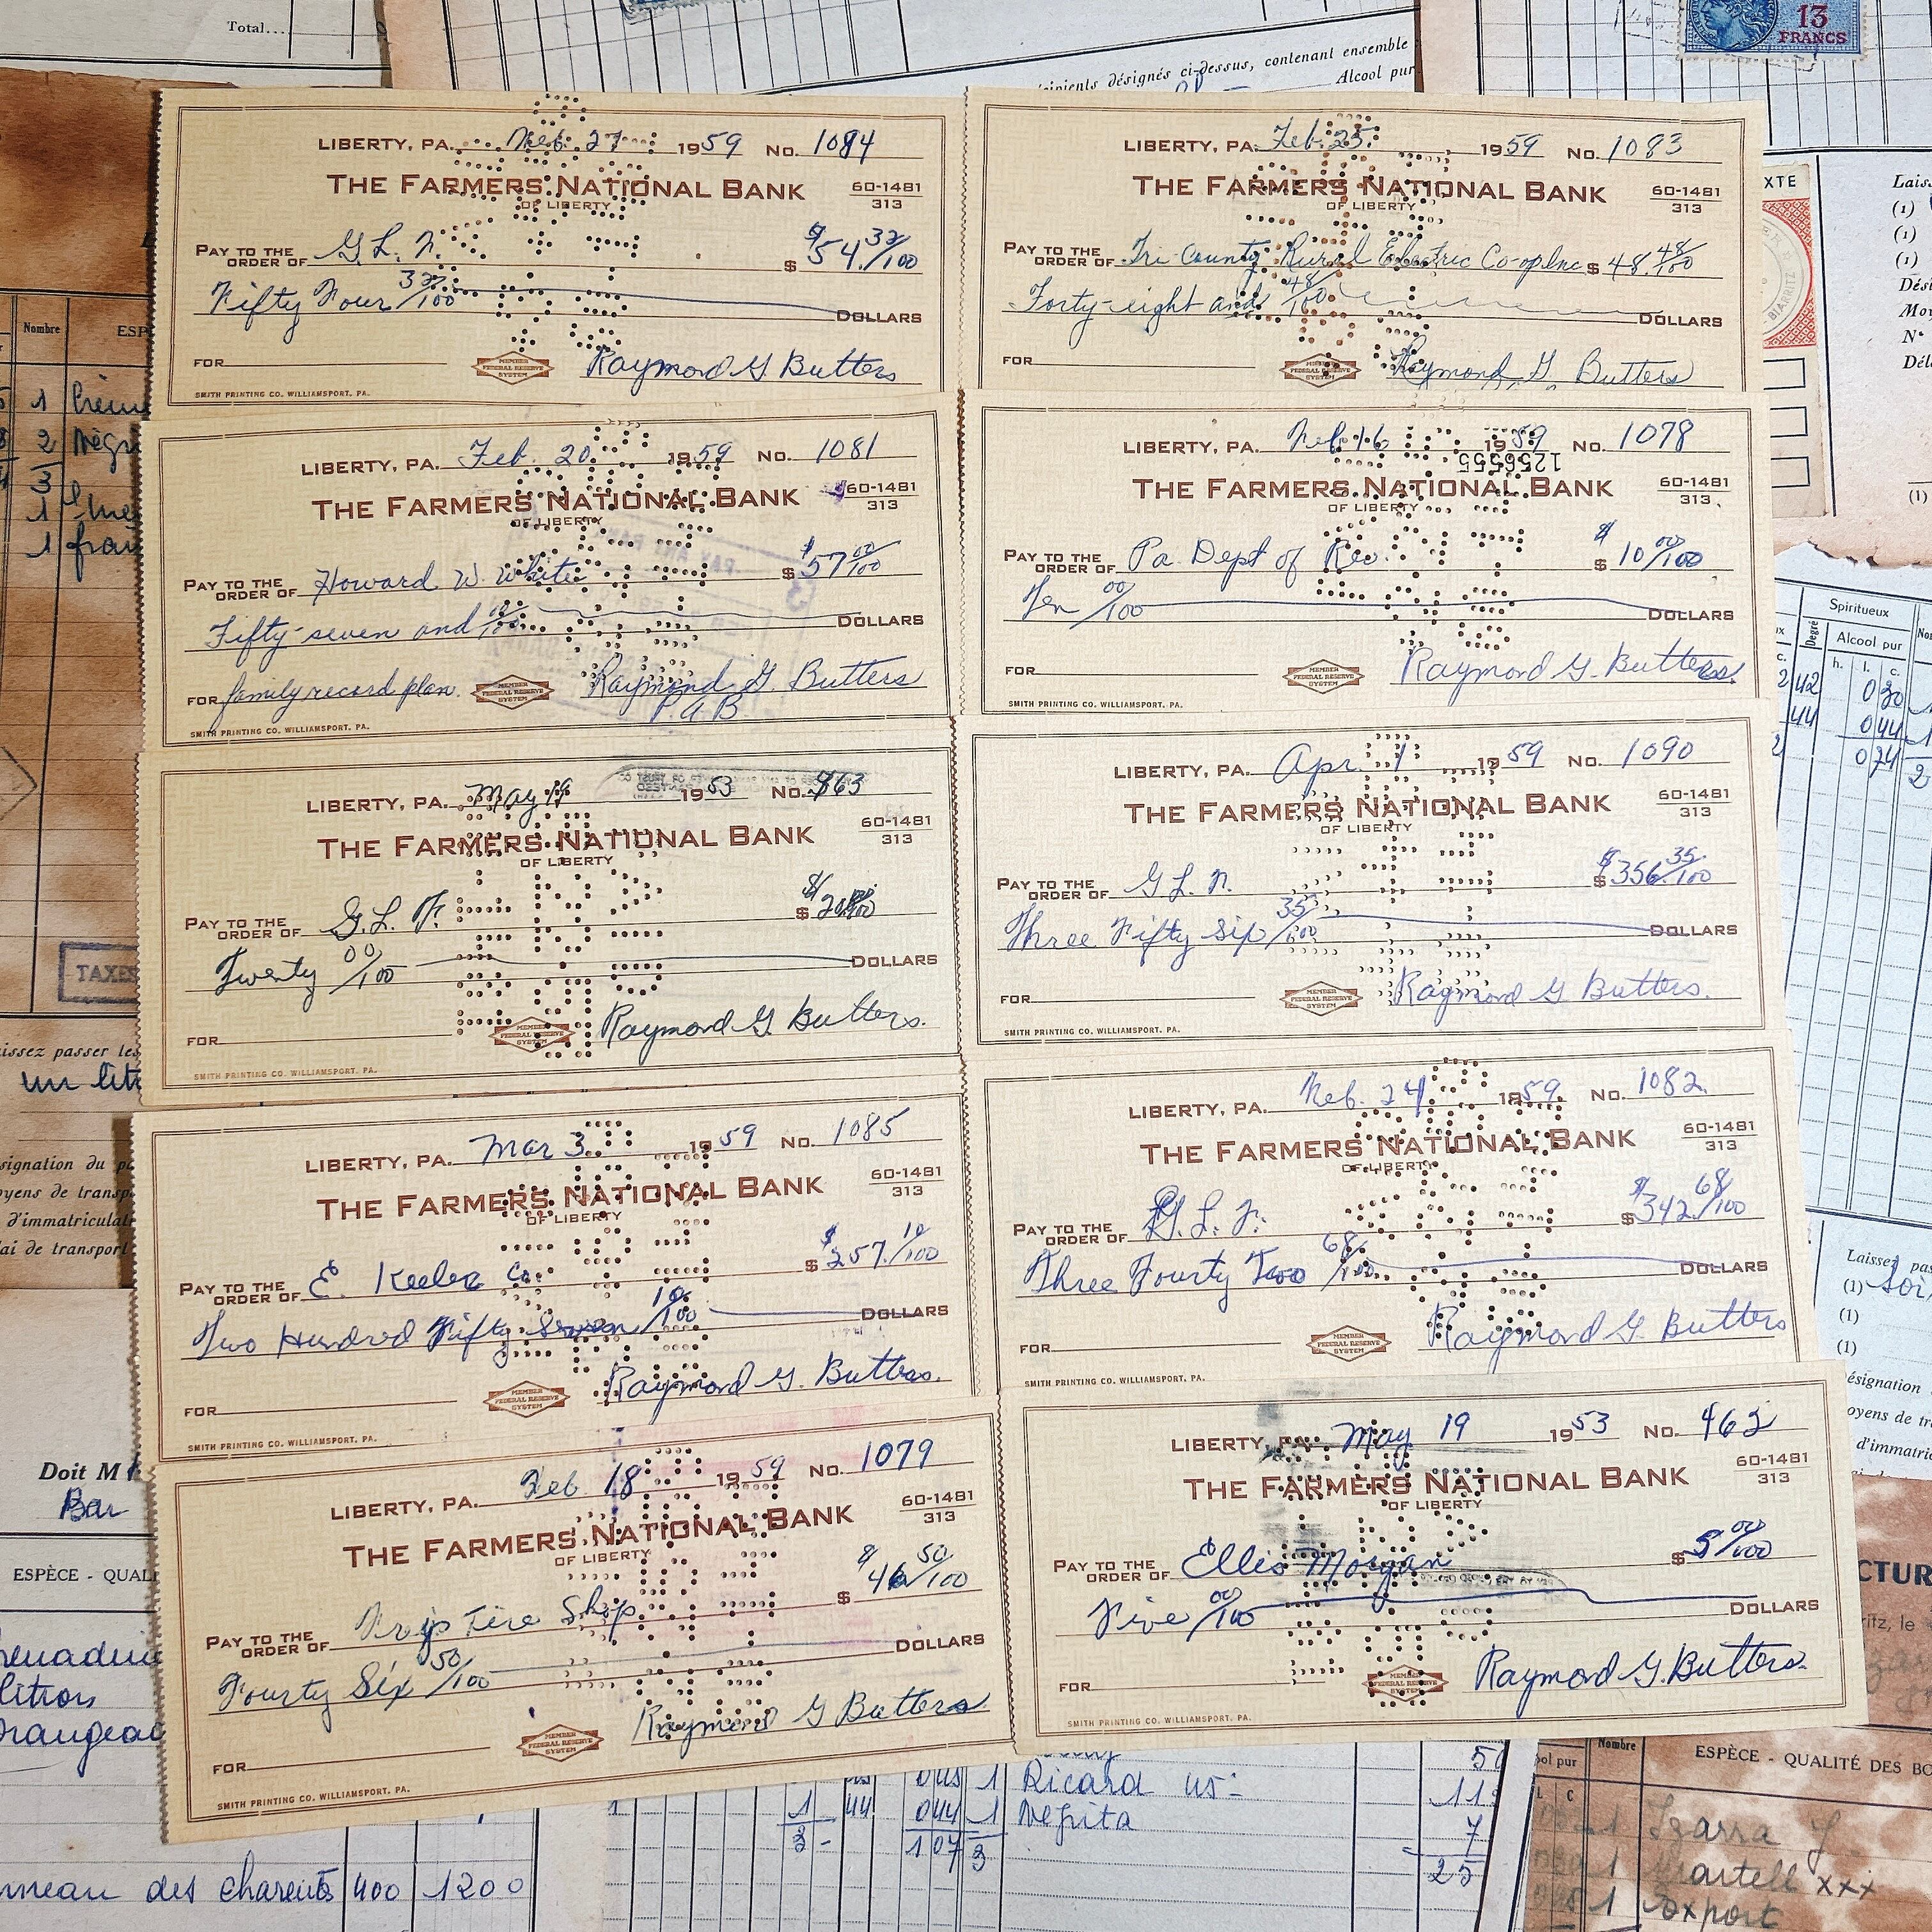 Total....
cipients désignés ci-dessus, contenant ensemble
Alcool pur
13
FRANCS
LIBERTY, PA. Feb. 27 1959 No. 1084
THE FARMERS NATIONAL BANK
OF LIBERTY
60-1481
313
PAY TO THE
ORDER OF G.L.N. $ 54. 32/100
Fifty Four 32/100 DOLLARS
FOR
MEMBER
FEDERAL RESERVE
SYSTEM
Raymond G Butters
SMITH PRINTING CO. WILLIAMSPORT, PA.
LIBERTY, PA. Feb. 25. 1959 No. 1083
THE FARMERS NATIONAL BANK
OF LIBERTY
60-1481
313
PAY TO THE
ORDER OF Tri-County Rural Electric Co-op Inc $ 48. 48/100
Forty-eight and 48/100 DOLLARS
FOR
MEMBER
FEDERAL RESERVE
SYSTEM
Raymond G. Butters
LIBERTY, PA. Feb. 20. 1959 No. 1081
THE FARMERS NATIONAL BANK
OF LIBERTY
60-1481
313
PAY TO THE
ORDER OF Howard W. White $ 57 00/100
Fifty-seven and 00/100 DOLLARS
FOR family record plan.
MEMBER
FEDERAL RESERVE
SYSTEM
Raymond G. Butters
P.A.B
SMITH PRINTING CO. WILLIAMSPORT, PA.
LIBERTY, PA. Feb 16 1959 No. 1078
1256555
THE FARMERS NATIONAL BANK
OF LIBERTY
60-1481
313
PAY TO THE
ORDER OF Pa. Dept of Rev. $ 10 00/100
Ten 00/100 DOLLARS
FOR
MEMBER
FEDERAL RESERVE
SYSTEM
Raymond G. Butters
SMITH PRINTING CO. WILLIAMSPORT, PA.
LIBERTY, PA. May 19 1953 No. 463
THE FARMERS NATIONAL BANK
OF LIBERTY
60-1481
313
PAY TO THE
ORDER OF G.L.F. $ 20 00/100
Twenty 00/100 DOLLARS
FOR
MEMBER
FEDERAL RESERVE
SYSTEM
Raymond G Butters.
SMITH PRINTING CO. WILLIAMSPORT, PA.
LIBERTY, PA. Apr 1 1959 No. 1090
THE FARMERS NATIONAL BANK
OF LIBERTY
60-1481
313
PAY TO THE
ORDER OF G.L.N. $ 356. 35/100
Three Fifty Six 35/100 DOLLARS
FOR
MEMBER
FEDERAL RESERVE
SYSTEM
Raymond G Butters.
SMITH PRINTING CO. WILLIAMSPORT, PA.
LIBERTY, PA. Mar 3 1959 No. 1085
THE FARMERS NATIONAL BANK
OF LIBERTY
60-1481
313
PAY TO THE
ORDER OF E. Keeler Co. $ 257. 10/100
Two Hundred Fifty Seven 10/100 DOLLARS
FOR
MEMBER
FEDERAL RESERVE
SYSTEM
Raymond G. Butters.
SMITH PRINTING CO. WILLIAMSPORT, PA.
LIBERTY, PA. Feb. 24 1959. No. 1082
THE FARMERS NATIONAL BANK
OF LIBERTY
60-1481
313
PAY TO THE
ORDER OF G.L.F. $ 342. 68/100
Three Fourty Two 68/100 DOLLARS
FOR
MEMBER
FEDERAL RESERVE
SYSTEM
Raymond G Butters
SMITH PRINTING CO. WILLIAMSPORT, PA.
LIBERTY, PA. Feb 18 1959 No. 1079
THE FARMERS NATIONAL BANK
OF LIBERTY
60-1481
313
PAY TO THE
ORDER OF Tire Shop $ 46 50/100
Fourty Six 50/100 DOLLARS
FOR
MEMBER
FEDERAL RESERVE
SYSTEM
Raymond G Butters
SMITH PRINTING CO. WILLIAMSPORT, PA.
LIBERTY, PA. May 19 1953 No. 462
THE FARMERS NATIONAL BANK
OF LIBERTY
60-1481
313
PAY TO THE
ORDER OF Ellis Morgan $ 5 00/100
Five 00/100 DOLLARS
FOR
MEMBER
FEDERAL RESERVE
SYSTEM
Raymond G. Butters.
SMITH PRINTING CO. WILLIAMSPORT, PA.
Nombre ESP
TAXES
issez passer les
un lit
Doit M
Bar
ESPÈCE - QUAL
XTE
BIARRITZ
Spiritueux
Degré
Alcool pur
h. l. c.
0 30
0 44
0 74
Laissez pas
(1)
(1)
(1)
ésignation
oyens de tr
d'immatric
CTUR
ritz, le
044 1 Ricard
044 1 Népita
107 3
7
25
des charentes 400 1200
ool pur
Nombre
ESPÈCE - QUALITÉ DES BO
1 Izarra
1 Martell xxx
1 Export